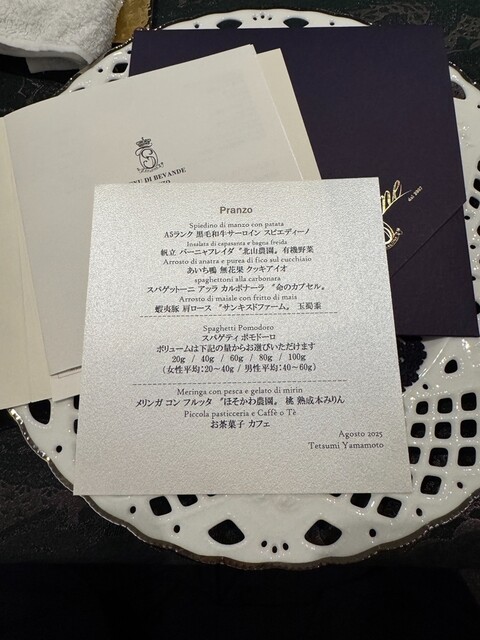 NU DI BEVANDE
Pranzo
Spiedino di manzo con patata
A5ランク 黒毛和牛サーロイン スピエディーノ
Insalata di capasanta e bagna freida
帆立 バーニャフレイダ〝北山農園〞有機野菜
Arrosto di anatra e purea di fico sul cucchiaio
あいち鴨 無花果 クッキアイオ
spaghettoni alla carbonara
スパゲットーニ アッラ カルボナーラ 〝命のカプセル〞
Arrosto di maiale con fritto di mais
蝦夷豚 肩ロース 〝サンキストファーム〞 玉蜀黍
Spaghetti Pomodoro
スパゲティ ポモドーロ
ボリュームは下記の量からお選びいただけます
20g / 40g / 60g / 80g / 100g
(女性平均:20~40g / 男性平均:40~60g)
Meringa con pesca e gelato di mirin
メリンガ コン フルッタ 〝ほそかわ農園〞 桃 熟成本みりん
Piccola pasticceria e Caffè o Tè
お茶菓子 カフェ
Agosto 2025
Tetsumi Yamamoto